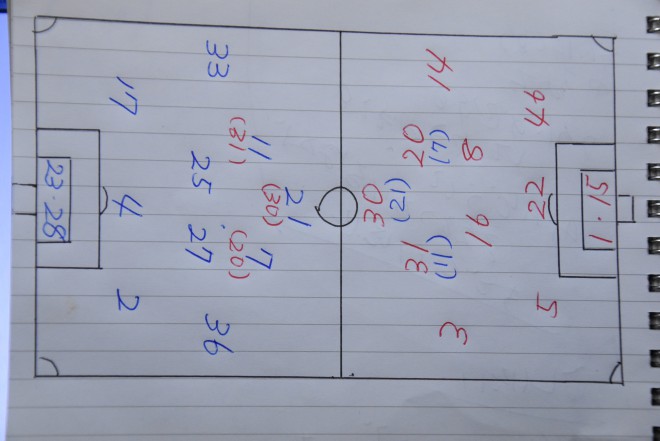 1・15
46 22 5
8 16
14 3
20 31
(7) (11)
30
(21)
21
(30)
11 7
(31) (20)
33 36
25 27
17 4 2
23・28